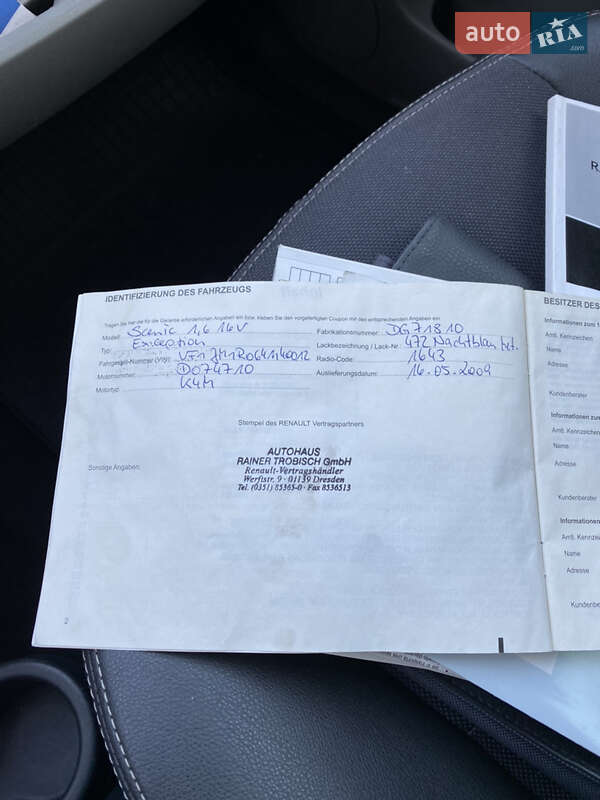 auto RIA.com
IDENTIFIZIERUNG DES FAHRZEUGS
Tragen Sie hier die für die Garantie erforderlichen Angaben ein bzw. kleben Sie den vorgefertigten Coupon mit den entsprechenden Angaben ein:
Modell: Scenic 1,6 16V
Typ: Exception
Fahrgestell-Nummer (VIN):
Motornummer: 074710
Motortyp: K4M
Fabrikationsnummer: DG71810
Lackbezeichnung / Lack-Nr.: 472 Nachtblau
Radio-Code: 1643
Auslieferungsdatum: 16.05.2009
Stempel des RENAULT Vertragspartners
Sonstige Angaben:
AUTOHAUS
RAINER TROBISCH GmbH
Renault-Vertragshändler
Werftstr. 9 · 01139 Dresden
Tel. (0351) 85365-0 · Fax 8536513
2
BESITZER DES
Informationen zum 1
Amtl. Kennzeichen
Name
Adresse
Kundenberater
Informationen zum
Amtl. Kennzeichen
Name
Adresse
Kundenberater
Informationen
Amtl. Kennzei
Name
Adresse
Kundenbe
R